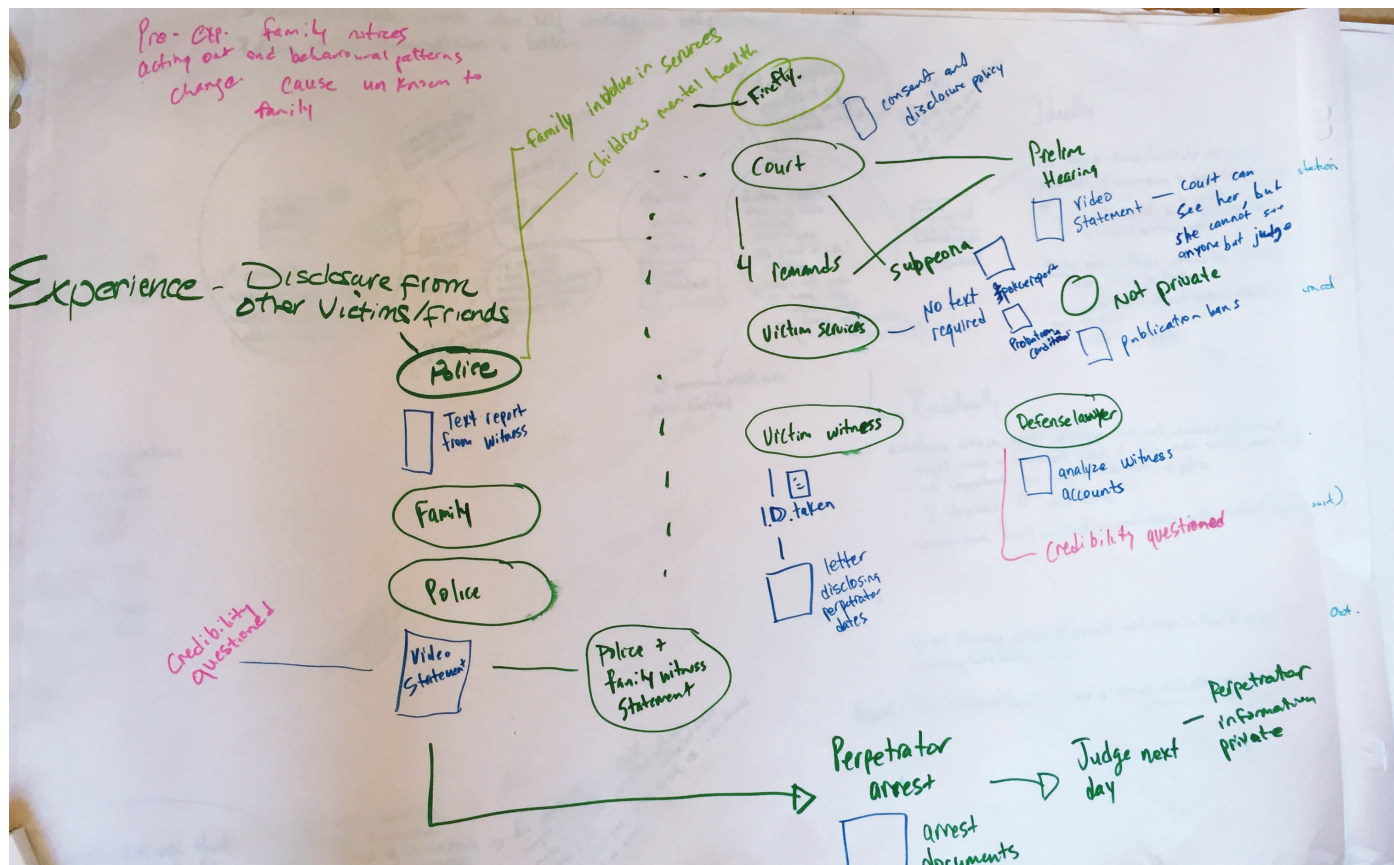 Pre-exp. family notices
acting out and behavioural patterns
change. cause unknown to
family
family involve in services
Childrens mental health
Firefly.
consent and
disclosure policy
Court
Prelim
Hearing
video
Statement — Court can
see her, but
she cannot see
anyone but judge
station
4 remands
subpeona
Experience - Disclosure from
other Victims/friends
Not private
Victim services — No text
required
Probation
conditions
publication bans
Police
Text report
from witness
Victim witness
Defense lawyer
analyze witness
accounts
I.D. taken
Family
Credibility questioned
Police
letter
disclosing
perpetrator
dates
Credibility
questioned
Video
Statement
Police +
family witness
Statement
Perpetrator
arrest
Judge next
day
— Perpetrator
information
private
arrest
documents